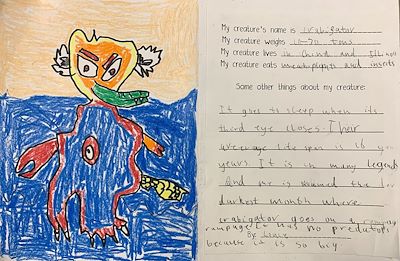 My creature's name is crabigator
My creature weighs 10-70 tons
My creature lives in China and
My creature eats meat plants and insects
Some other things about my creature:
It goes to sleep when its
third eye closes. Their
average life span is 16
years. It is in many legends
And is the
darkest month where
crabigator goes on a
rampage It has no predators
By:
because it is so big